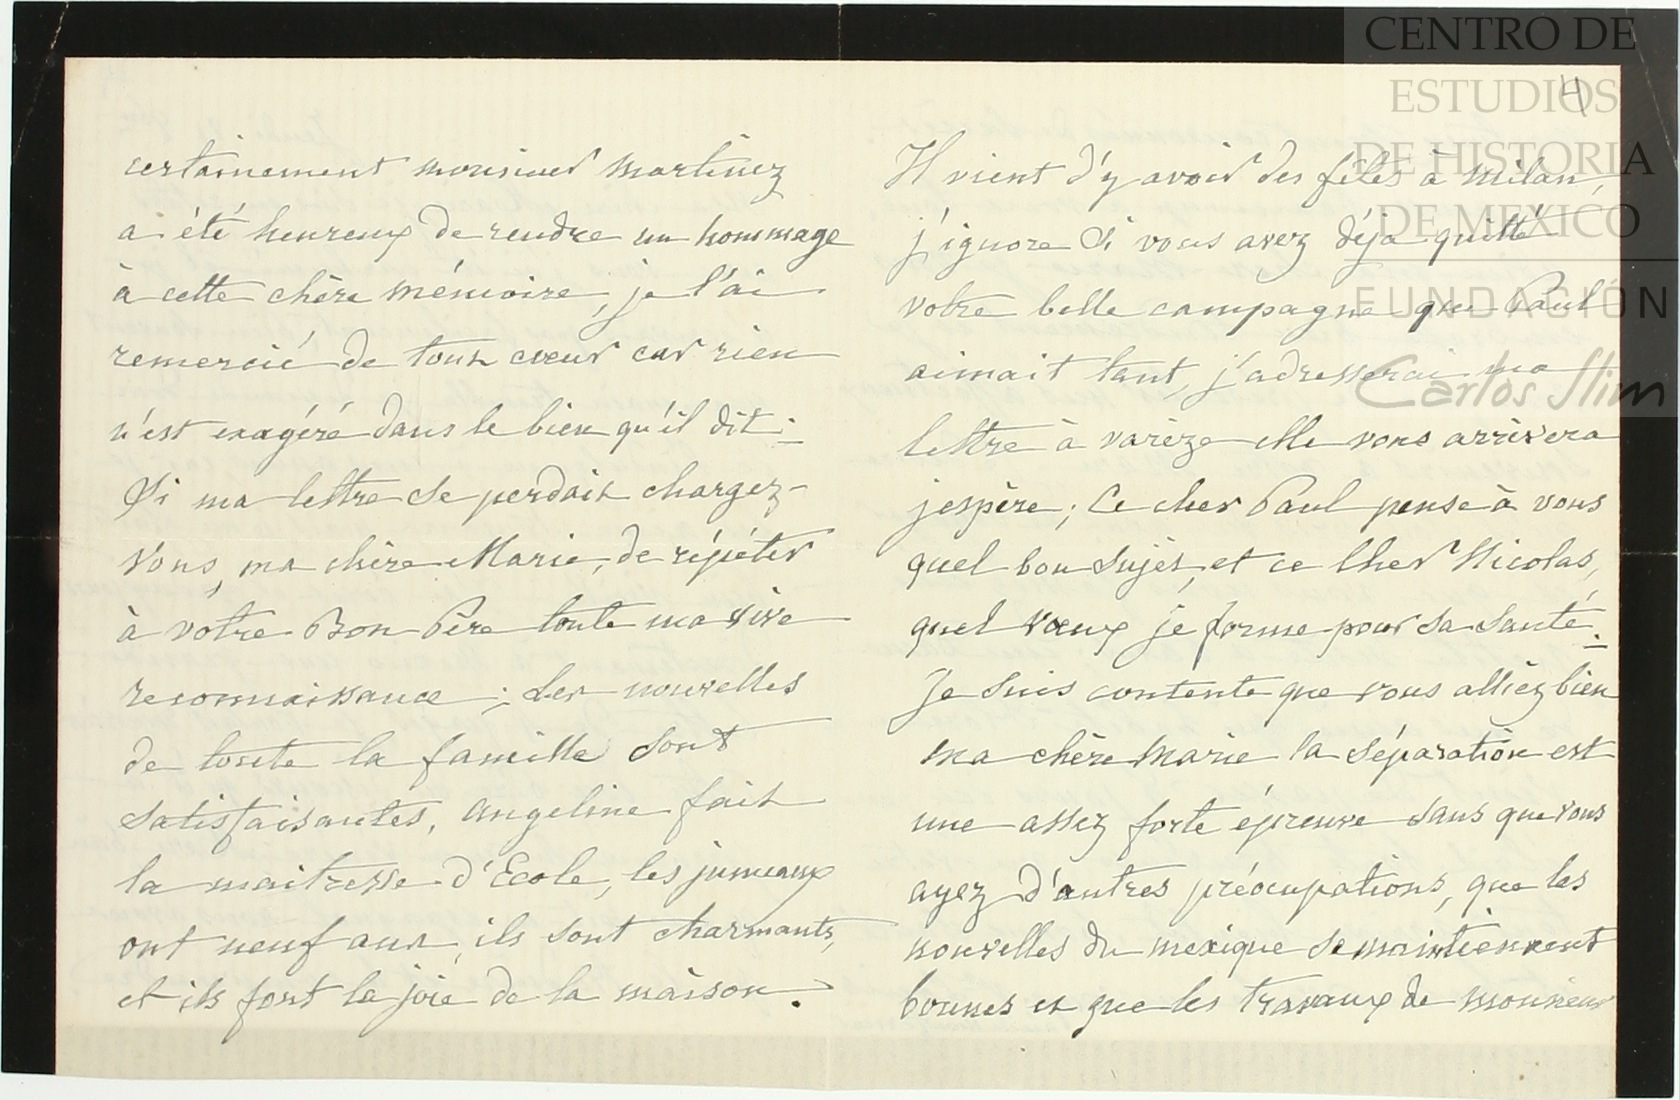 certainement monsieur Martinez
a été heureux de rendre un hommage
à cette chère mémoire, je l'ai
remercié de tout coeur car rien
n'est exagéré dans le bien qu'il dit.
Si ma lettre se perdait chargez-
vous, ma chère Marie, de répéter
à votre Bon Père toute ma vive
reconnaissance; Les nouvelles
de toute la famille sont
satisfaisantes, Angeline fait
la maitresse d'Ecole, les jumeaux
ont neuf ans, ils sont charmants,
et ils font la joie de la maison.
4
Il vient d'y avoir des fêtes à Milan,
j'ignore si vous avez déjà quitté
votre belle campagne que Paul
aimait tant, j'adresserai ma
lettre à varèze elle vous arrivera
j'espère; Ce cher Paul pense à vous
quel bon sujet, et ce cher Nicolas,
quel voeux je forme pour sa santé.
Je suis contente que vous alliez bien
ma chère Marie la séparation est
une assez forte épreuve sans que vous
ayez d'autres préocupations, que les
nouvelles du mexique se maintiennent
bonnes et que les travaux de monsieur
CENTRO DE
ESTUDIOS
DE HISTORIA
DE MEXICO
FUNDACIÓN
Carlos Slim